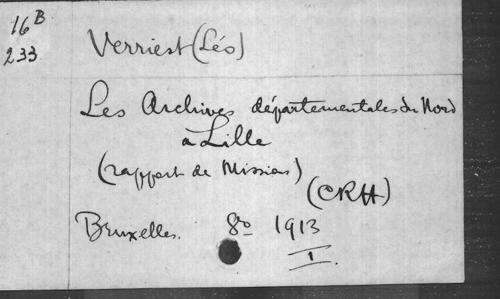 16B
233
Verriest (Léo)
Les Archives départementales du Nord
à Lille
(rapport de Mission)
(CRH)
Bruxelles. 8o 1913
I.